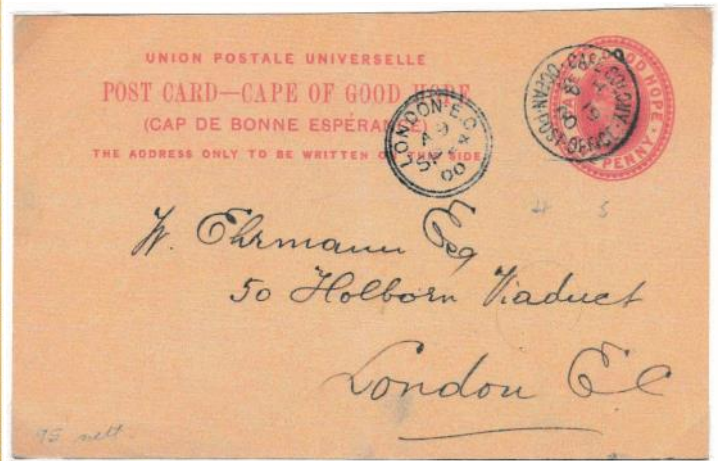 UNION POSTALE UNIVERSELLE
POST CARD—CAPE OF GOOD HOPE
(CAP DE BONNE ESPÉRANCE)
THE ADDRESS ONLY TO BE WRITTEN ON THIS SIDE
CAPE OF GOOD HOPE
PENNY
OCEAN POST OFFICE CAPE COLONY
LONDON E.C
00
4 5
W. Ehrmann Esq
50 Holborn Viaduct
London E C
75 nett